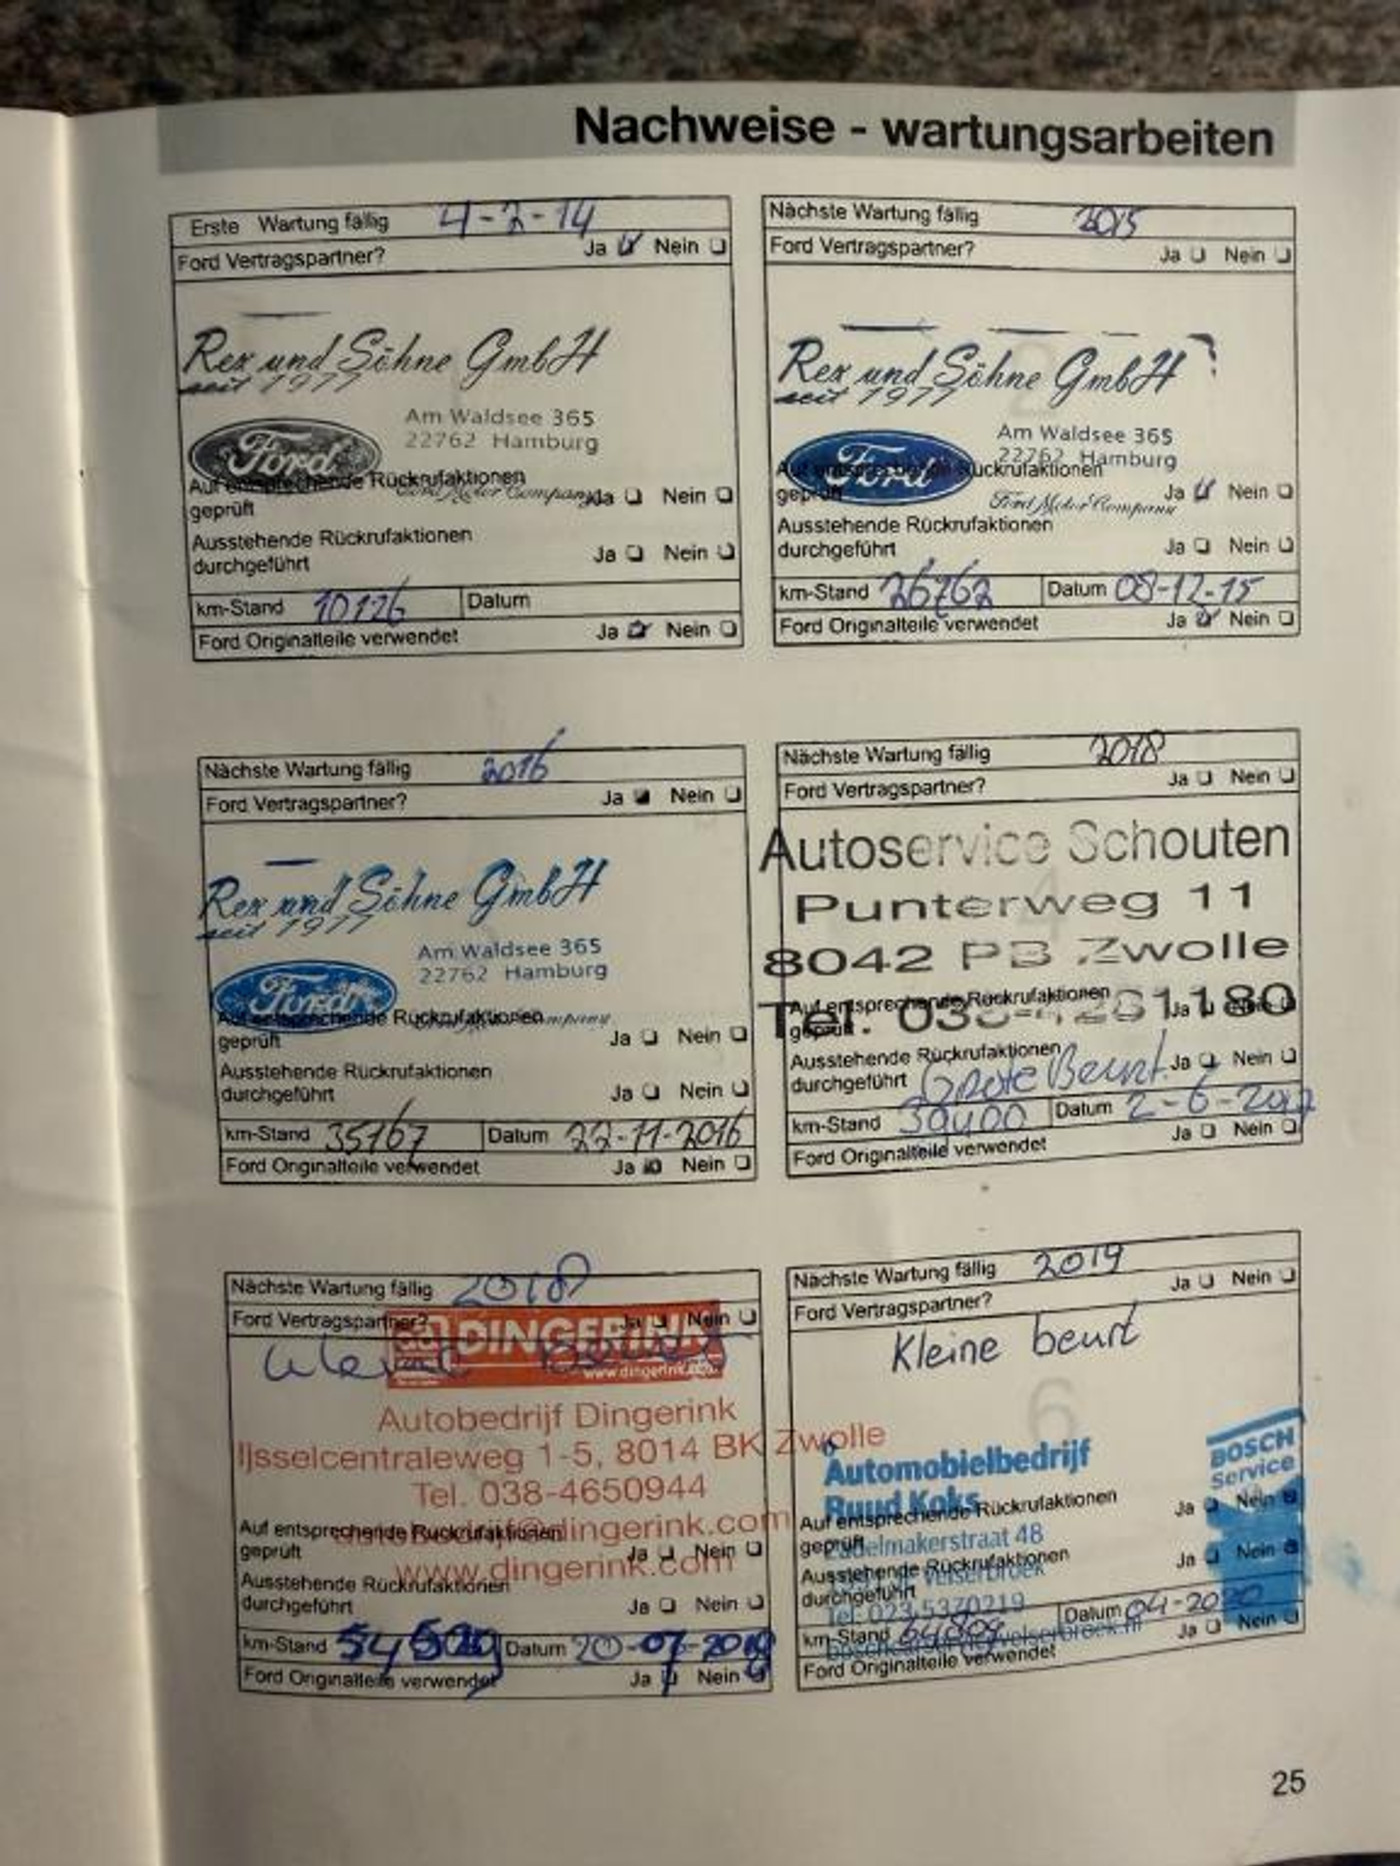 Nachweise - wartungsarbeiten
Erste Wartung fällig 4-2-14
Ford Vertragspartner? Ja Nein
Rex und Söhne GmbH
seit 1977
Am Waldsee 365
22762 Hamburg
Ford
Ford Motor Company
Auf entsprechende Rückrufaktionen
geprüft Ja Nein
Ausstehende Rückrufaktionen
durchgeführt Ja Nein
km-Stand 10126 Datum
Ford Originalteile verwendet Ja Nein
Nächste Wartung fällig 2015
Ford Vertragspartner? Ja Nein
2
Rex und Söhne GmbH
seit 1977
Am Waldsee 365
22762 Hamburg
Ford
Ford Motor Company
Auf entsprechende Rückrufaktionen
geprüft Ja Nein
Ausstehende Rückrufaktionen
durchgeführt Ja Nein
km-Stand 26762 Datum 08-12-15
Ford Originalteile verwendet Ja Nein
Nächste Wartung fällig 2016
Ford Vertragspartner? Ja Nein
Rex und Söhne GmbH
seit 1977
Am Waldsee 365
22762 Hamburg
Ford
Auf entsprechende Rückrufaktionen
geprüft Ja Nein
Ausstehende Rückrufaktionen
durchgeführt Ja Nein
km-Stand 35167 Datum 22-11-2016
Ford Originalteile verwendet Ja Nein
Nächste Wartung fällig 2018
Ford Vertragspartner? Ja Nein
4
Autoservice Schouten
Punterweg 11
8042 PB Zwolle
Tel.
Auf entsprechende Rückrufaktionen
geprüft Ja Nein
Ausstehende Rückrufaktionen
durchgeführt Grote Beurt Ja Nein
km-Stand 39400 Datum 2-6-2017
Ford Originalteile verwendet Ja Nein
Nächste Wartung fällig 2018
Ford Vertragspartner? Ja Nein
DINGERINK
www.dingerink.com
Autobedrijf Dingerink
IJsselcentraleweg 1-5, 8014 BK Zwolle
Tel. 038-4650944
autobedrijf@dingerink.com
www.dingerink.com
Auf entsprechende Rückrufaktionen
geprüft Ja Nein
Ausstehende Rückrufaktionen
durchgeführt Ja Nein
km-Stand Datum 20-07-2018
Ford Originalteile verwendet Ja Nein
Nächste Wartung fällig 2019
Ford Vertragspartner? Ja Nein
Kleine beurt
6
Automobielbedrijf
Ruud Koks
BOSCH
Service
Zadelmakerstraat 48
Velserbroek
Tel. 023 5370219
Auf entsprechende Rückrufaktionen
geprüft Ja Nein
Ausstehende Rückrufaktionen
durchgeführt Ja Nein
km-Stand 64809 Datum 04-2020
Ford Originalteile verwendet Ja Nein
25